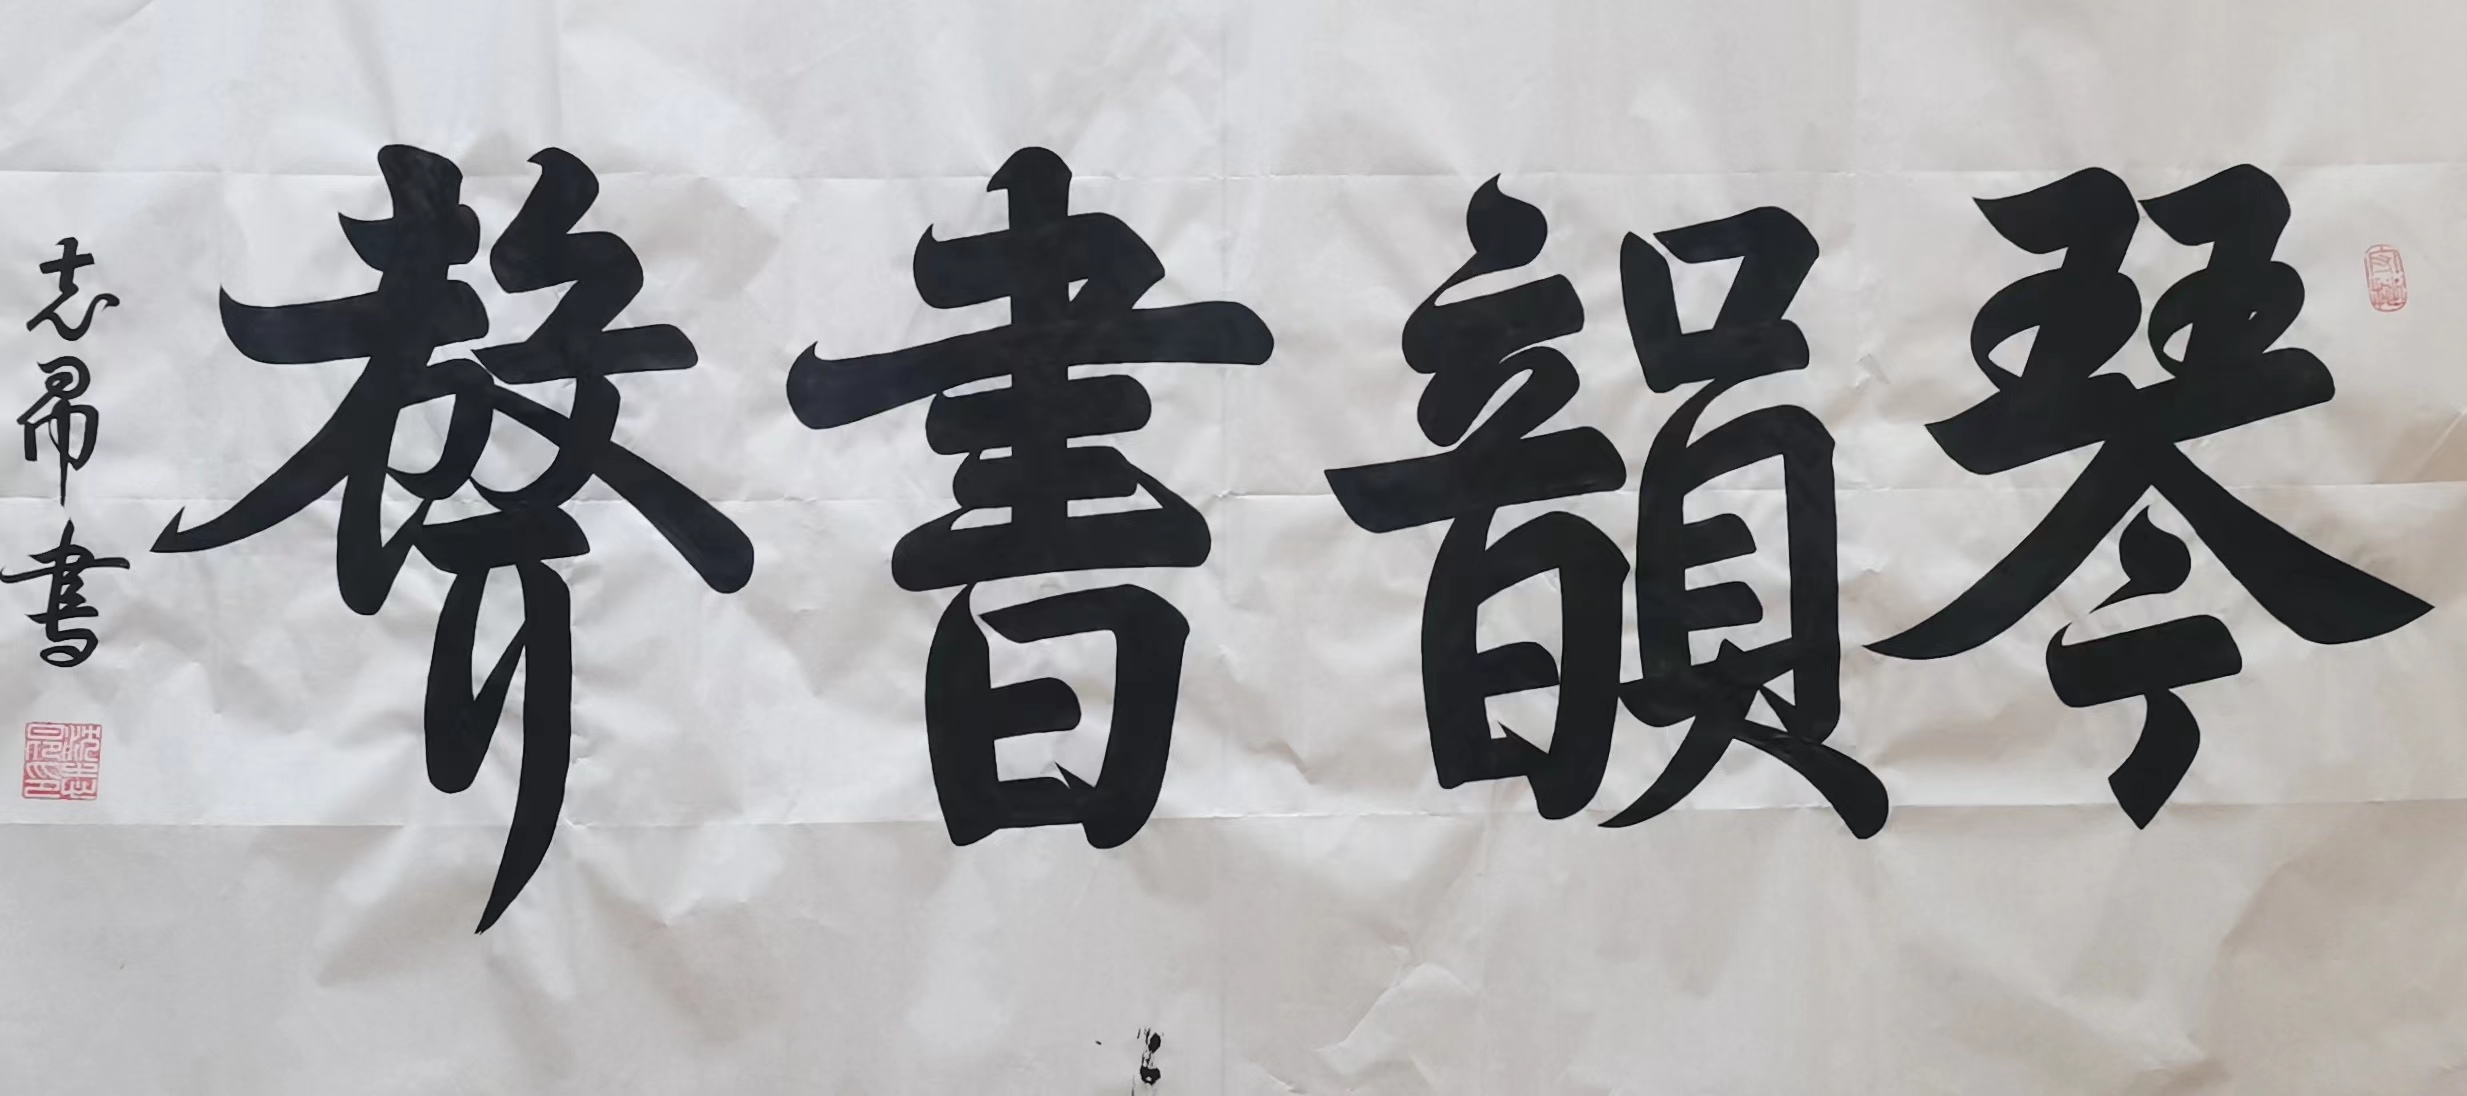 琴韻書聲
志書